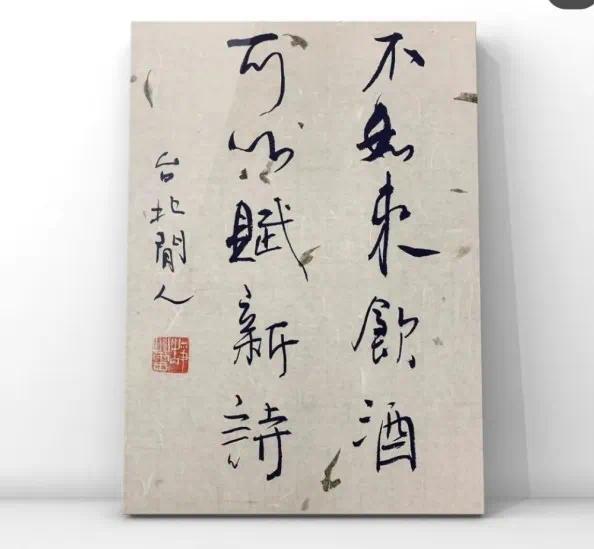 不如來飲酒
可以賦新詩
台北閒人